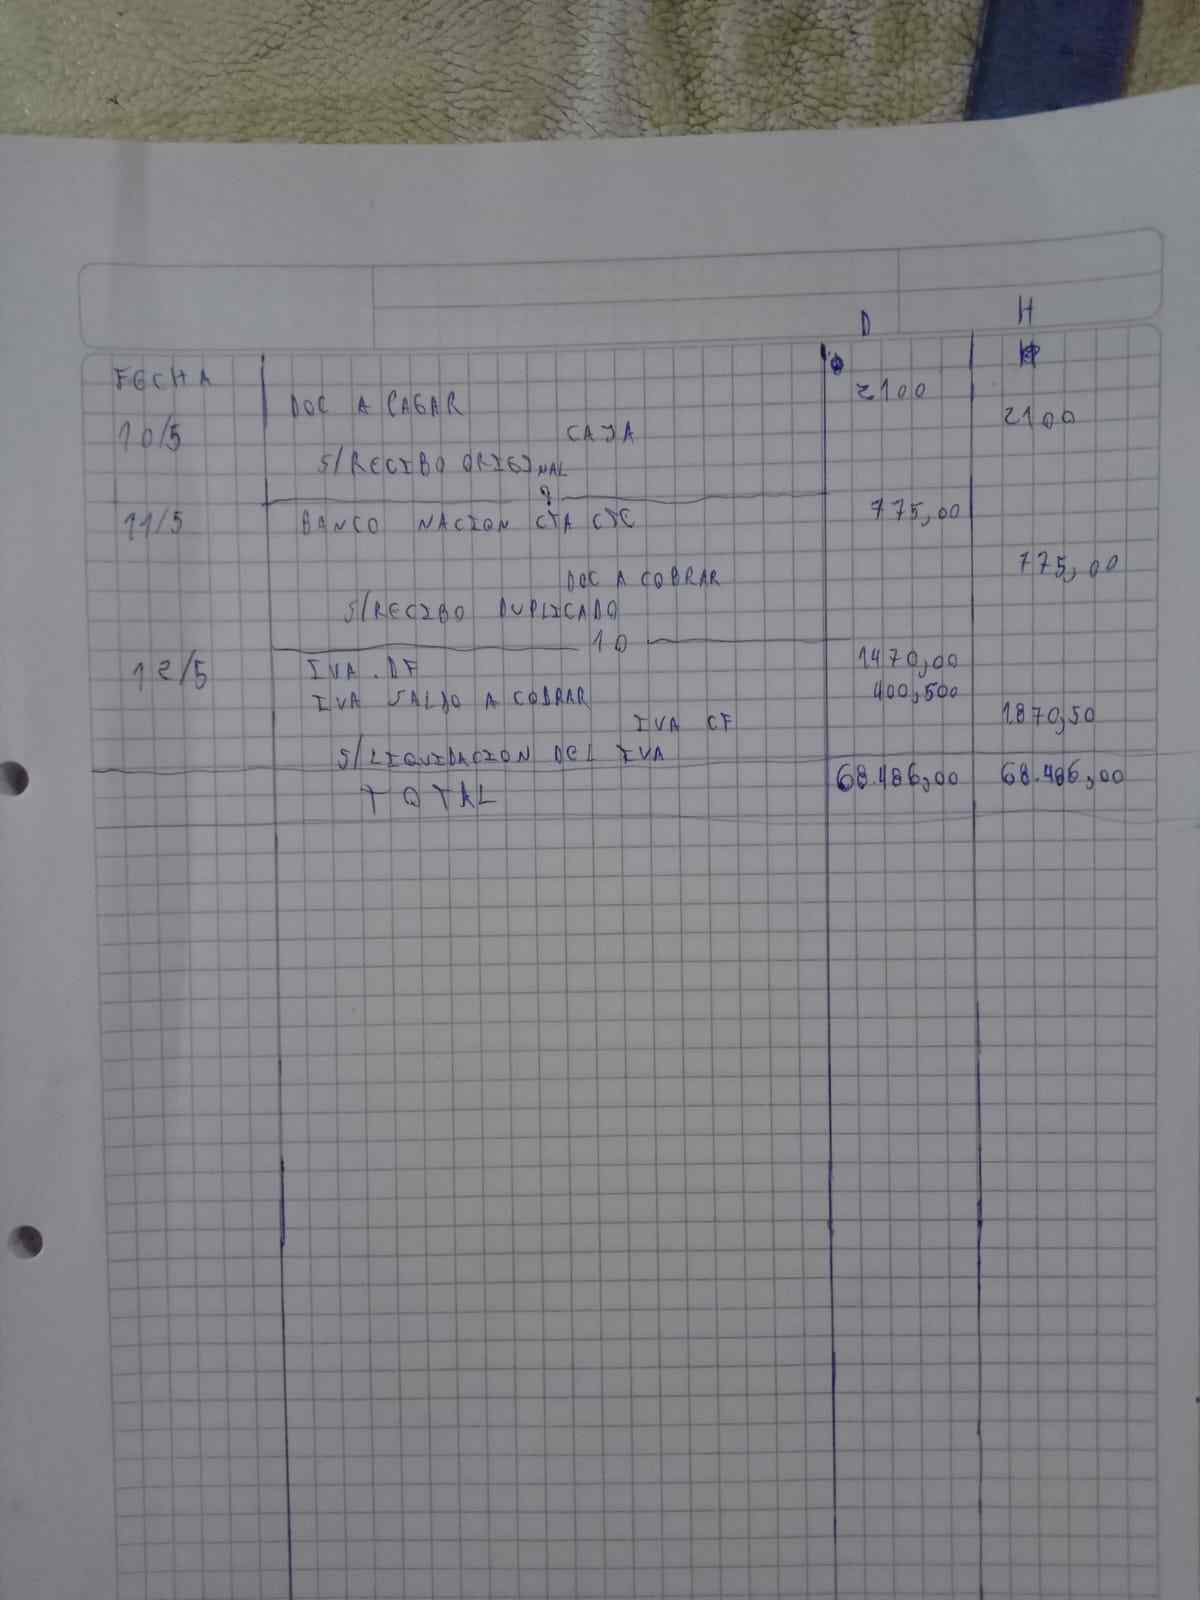 D H
FECHA
DOC A PAGAR 2100
10/5 CAJA 2100
S/RECIBO ORIGINAL
9
11/5 BANCO NACION CTA CTE 775,00
DOC A COBRAR 775,00
S/RECIBO DUPLICADO
10
12/5 IVA DF 1470,00
IVA SALDO A COBRAR 400,500
IVA CF 1870,50
S/LIQUIDACION DEL IVA
TOTAL 68.486,00 68.486,00